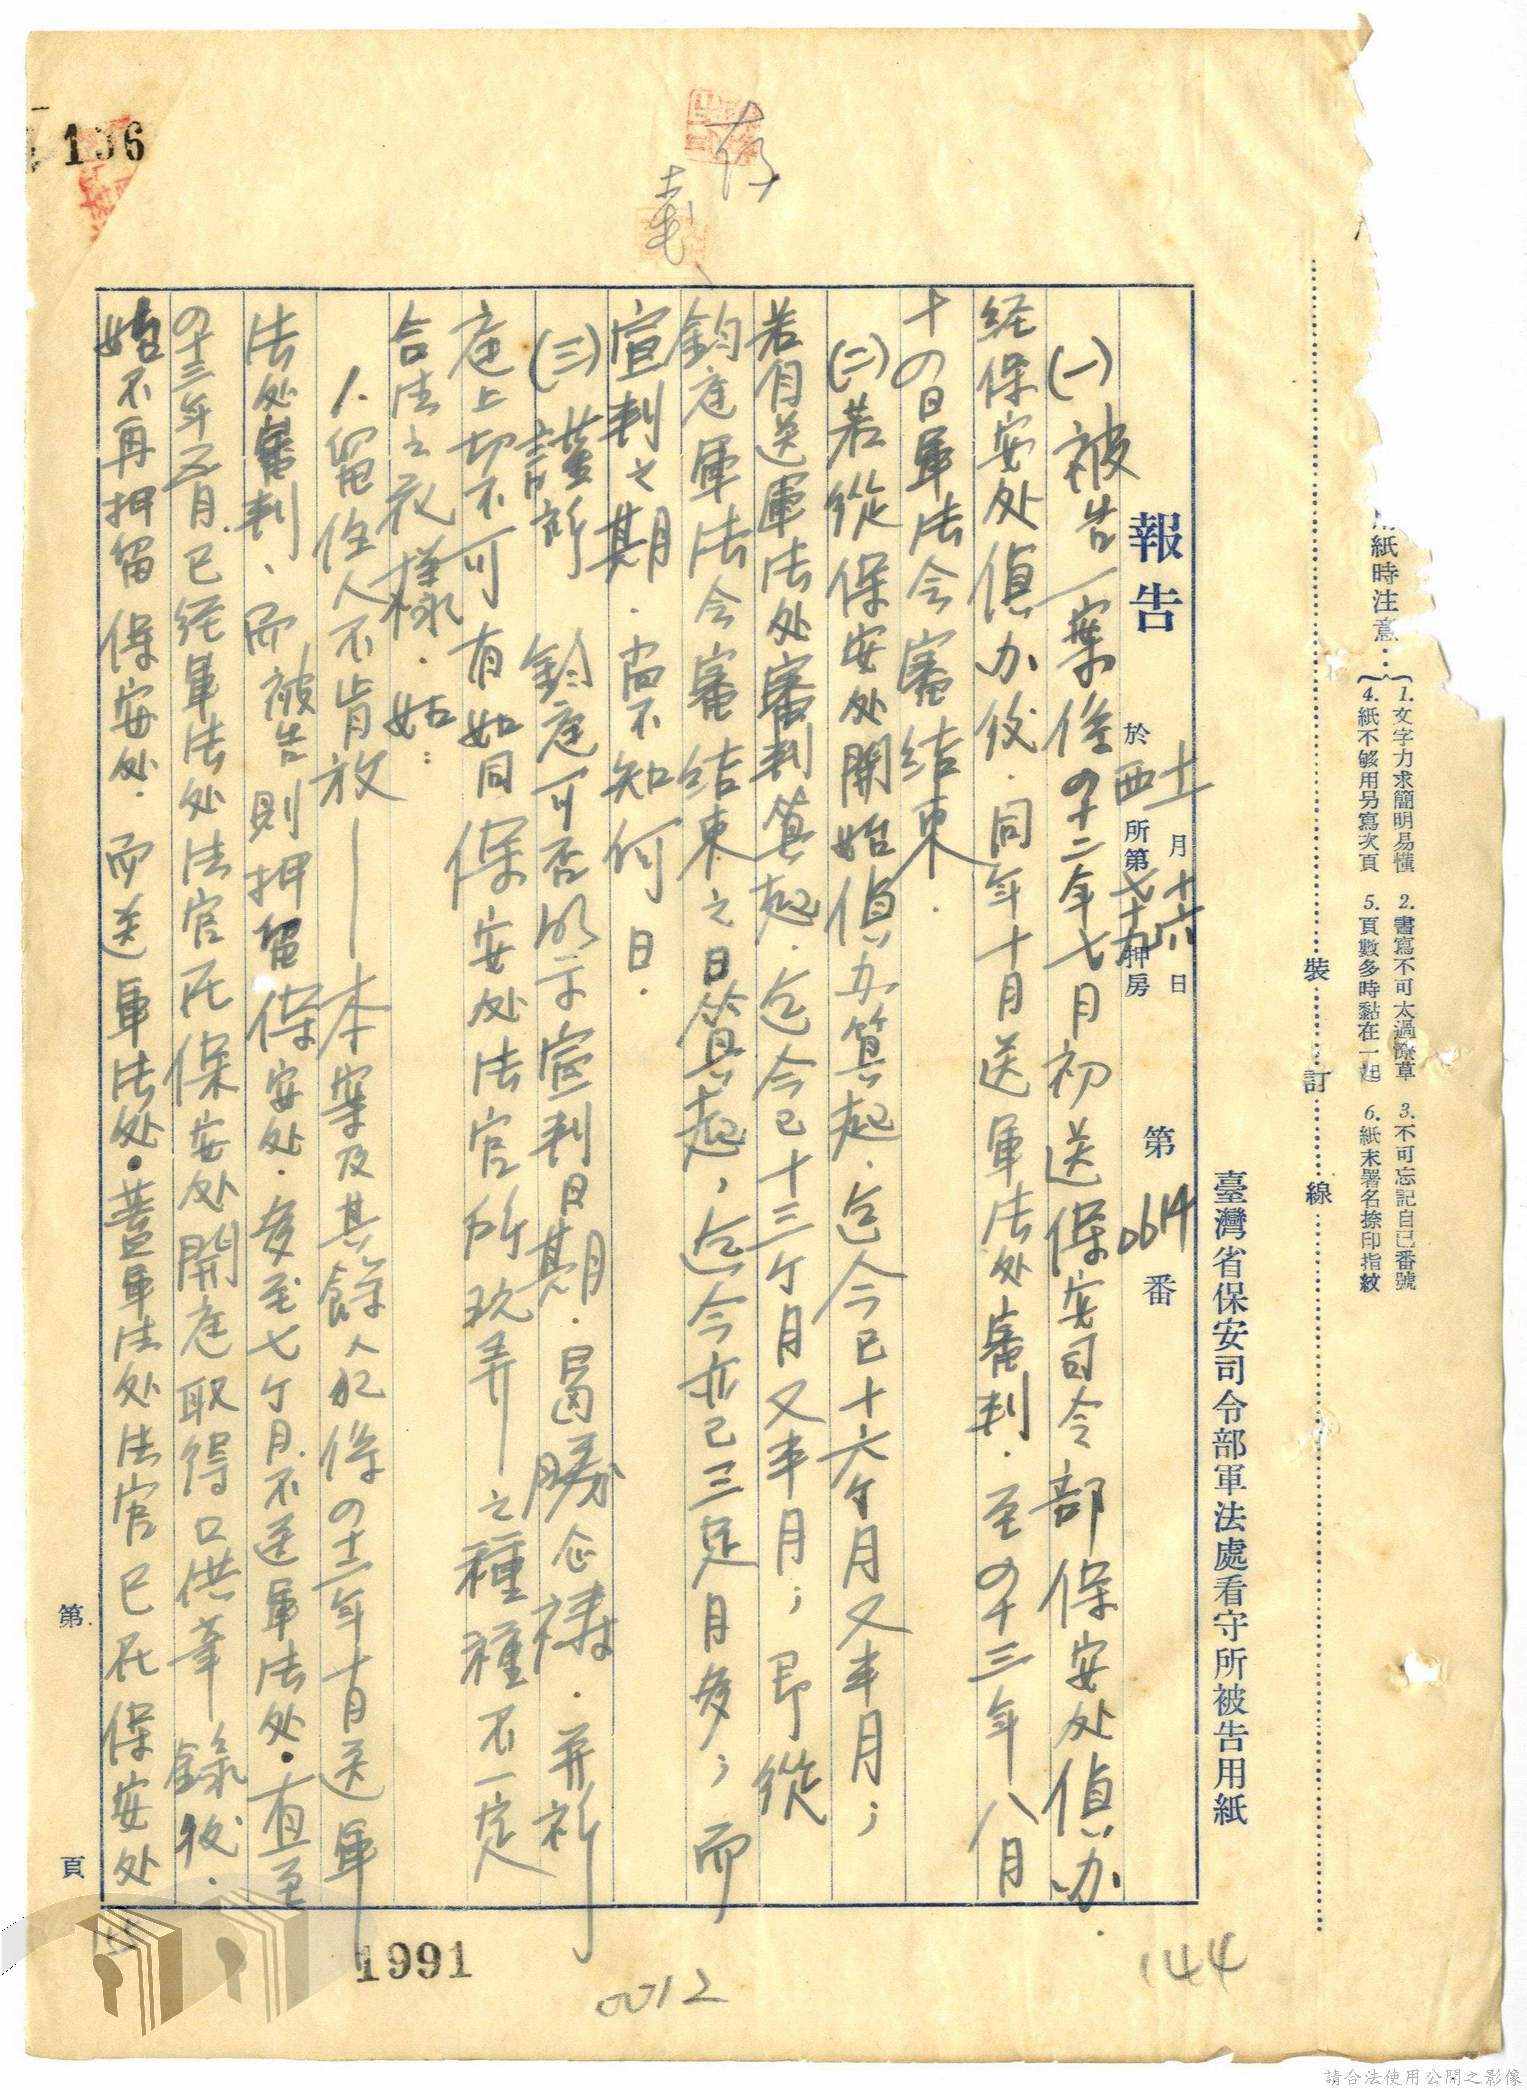 用紙時注意：
1. 文字力求簡明易懂
2. 書寫不可太過潦草
3. 不可忘記自己番號
4. 紙不够用另寫次頁
5. 頁數多時黏在一起
6. 紙末署名捺印指紋
裝 訂 線
臺灣省保安司令部軍法處看守所被告用紙
報告
十一月十六日
於西所第七十九押房
第0614番
(一)被告一案係四十二年七月初送保安司令部保安处偵办.
经保安处偵办後.同年十月送軍法处審判.至四十三年八月
十四日軍法会審結束.
(二)若從保安处開始偵办算起.迄今已十六ケ月又半月；
若自送軍法处審判算起.迄今已十三ケ月又半月；即從
鈞庭軍法会審結束之日算起，迄今亦已三足月多；而
宣判之期.尚不知何日.
(三)謹祈 鈞庭可否明示宣判日期.曷勝企禱.并祈
請訴
庭上切不可有如同保安处法官所玩弄—之種種不一定
合法之花樣.如：
1.留住人不肯放——本案及其餘人犯係四十二年十月送軍
法处審判、而被告則押留保安处.多至七ケ月不送軍法处.直至
四十三年五月.已经軍法处法官在保安处開庭取得口供筆錄後.
始不再押留保安处.而送軍法处.蓋軍法处法官已在保安处
第 頁
存
106
1991
0012
144
請合法使用公開之影像